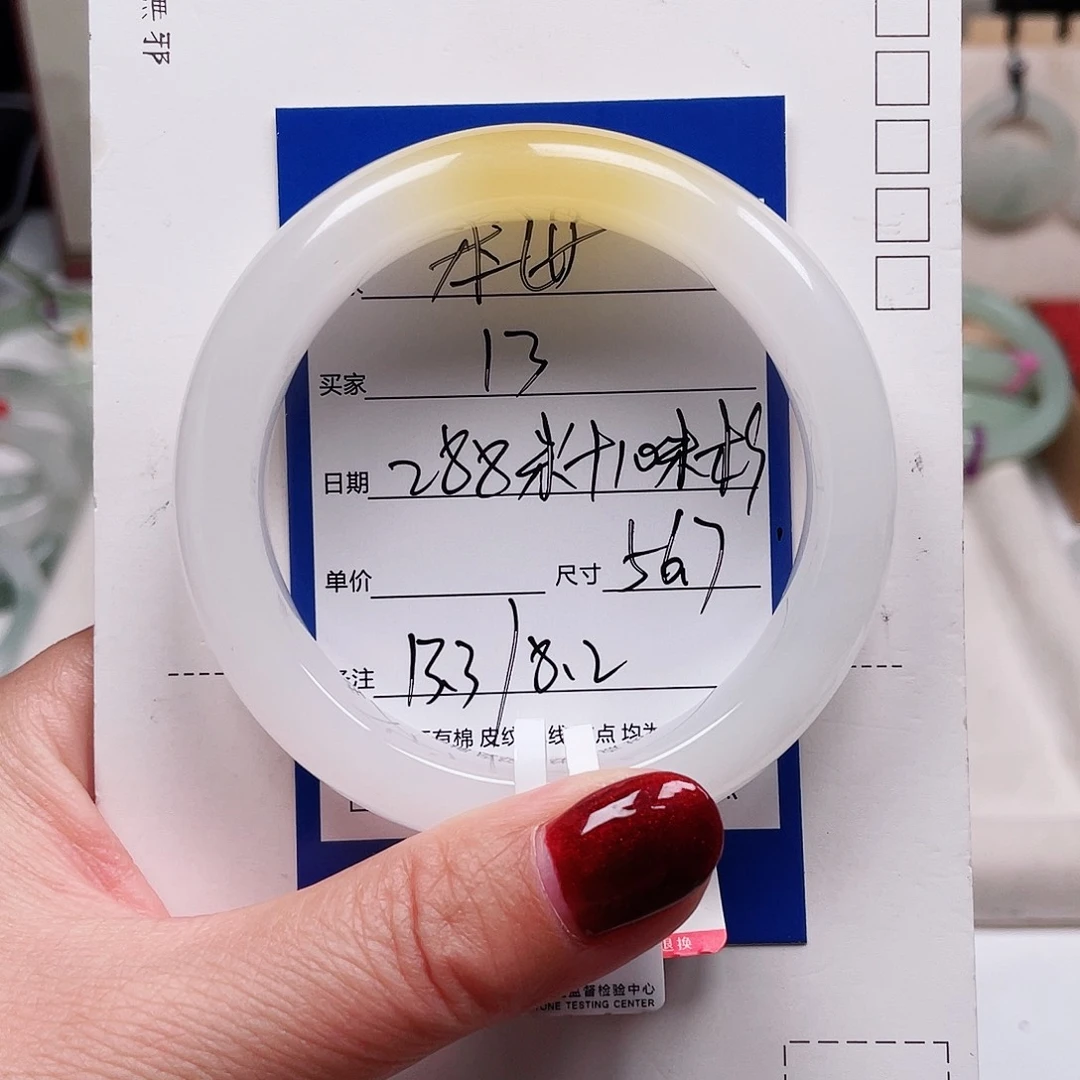 無邪
13
买家
日期 288米+10味
单价 尺寸 567
注 13.3/8.2
有棉 皮纹 线 点 均为
退换
监督检验中心
TONE TESTING CENTER